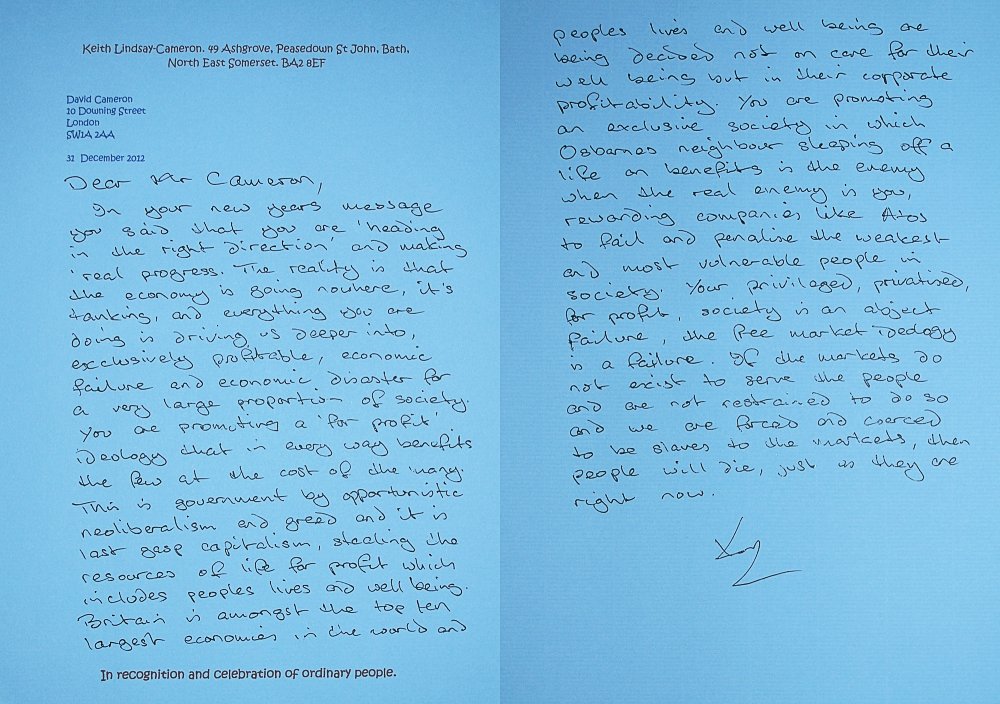 Keith Lindsay-Cameron. 49 Ashgrove, Peasedown St John, Bath,
North East Somerset. BA2 8EF
David Cameron
10 Downing Street
London
SW1A 2AA
31 December 2012
Dear Mr Cameron,
In your new years message
you said that you are 'heading
in the right direction' and making
'real progress. The reality is that
the economy is going nowhere, it's
tanking, and everything you are
doing is driving us deeper into,
exclusively profitable, economic
failure and economic disaster for
a very large proportion of society.
You are promoting a 'for profit'
ideology that in every way benefits
the few at the cost of the many.
This is government by opportunistic
neoliberalism and greed and it is
last gasp capitalism, stealing the
resources of life for profit which
includes peoples lives and well being.
Britain is amongst the top ten
largest economies in the world and
In recognition and celebration of ordinary people.
peoples lives and well being are
being decided not on care for their
well being but in their corporate
profitability. You are promoting
an exclusive society in which
Osbornes neighbour sleeping off a
life on benefits is the enemy
when the real enemy is you,
rewarding companies like Atos
to fail and penalise the weakest
and most vulnerable people in
society. Your privileged, privatised,
for profit, society is an abject
failure, the free market ideology
is a failure. If the markets do
not exist to serve the people
and are not restrained to do so
and we are forced and coerced
to be slaves to the markets, then
people will die, just as they are
right now.